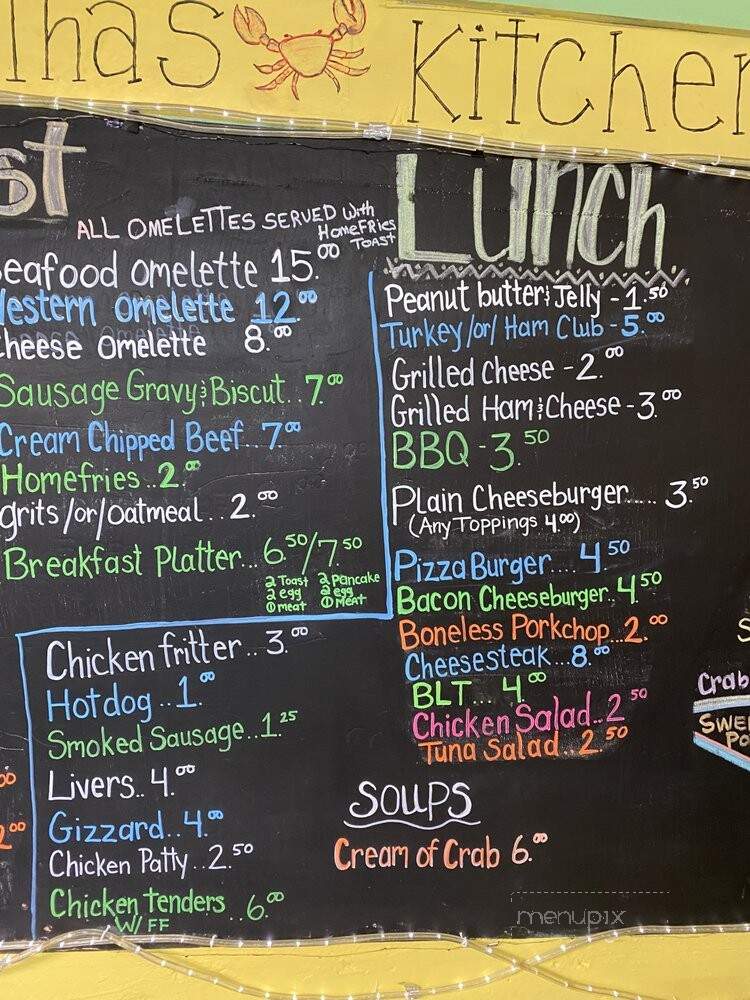 Kitchen
ALL OMELETTES SERVED With
HomeFRies
TOAST
Seafood Omelette 15.00
Western Omelette 12.00
Cheese Omelette 8.00
Sausage Gravy & Biscut.. 7.00
Cream Chipped Beef.. 7.00
Homefries.. 2.00
grits/or/oatmeal.. 2.00
Breakfast Platter... 6.50/7.50
2 Toast 2 Pancake
2 egg 2 egg
1 meat 1 Meat
Chicken fritter.. 3.00
Hotdog.. 1.00
Smoked Sausage.. 1.25
Livers.. 4.00
Gizzard.. 4.00
Chicken Patty.. 2.50
Chicken tenders.. 6.00
W/ FF
Lunch
Peanut butter & Jelly - 1.50
Turkey/or/Ham Club - 5.00
Grilled Cheese - 2.00
Grilled Ham & Cheese - 3.00
BBQ - 3.50
Plain Cheeseburger.... 3.50
(Any Toppings 4.00)
Pizza Burger.... 4.50
Bacon Cheeseburger.. 4.50
Boneless Porkchop... 2.00
Cheesesteak... 8.00
BLT... 4.00
Chicken Salad.. 2.50
Tuna Salad.. 2.50
SOUPS
Cream of Crab 6.00
Crab
menupix